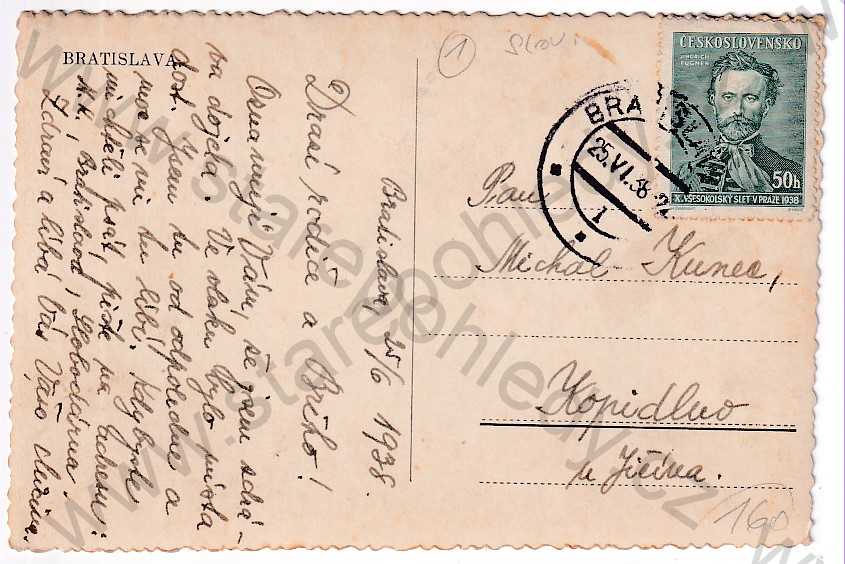 BRATISLAVA
1
Slov.
ČESKOSLOVENSKO
JINDŘICH
FÜGNER
50h
X. VŠESOKOLSKÝ SLET V PRAZE 1938
BRATISLAVA
25.VI.38
1
Bratislava, 25/6 1938.
Drazí rodiče a Bečko!
Oznamuji Vám, že jsem zdrá-
va dojela. Ve vlaku bylo místa
dost. Jsem tu od odpoledne a
moc se mi tu líbí. Kdybyste
mi chtěli psát, pište na adresu:
Bratislava, Slobodárna
Zdraví a líbá Vás Vaše
Pan
Michal Kunec,
Kopidlno
u Jičína.
160
www.starepohledy.cz